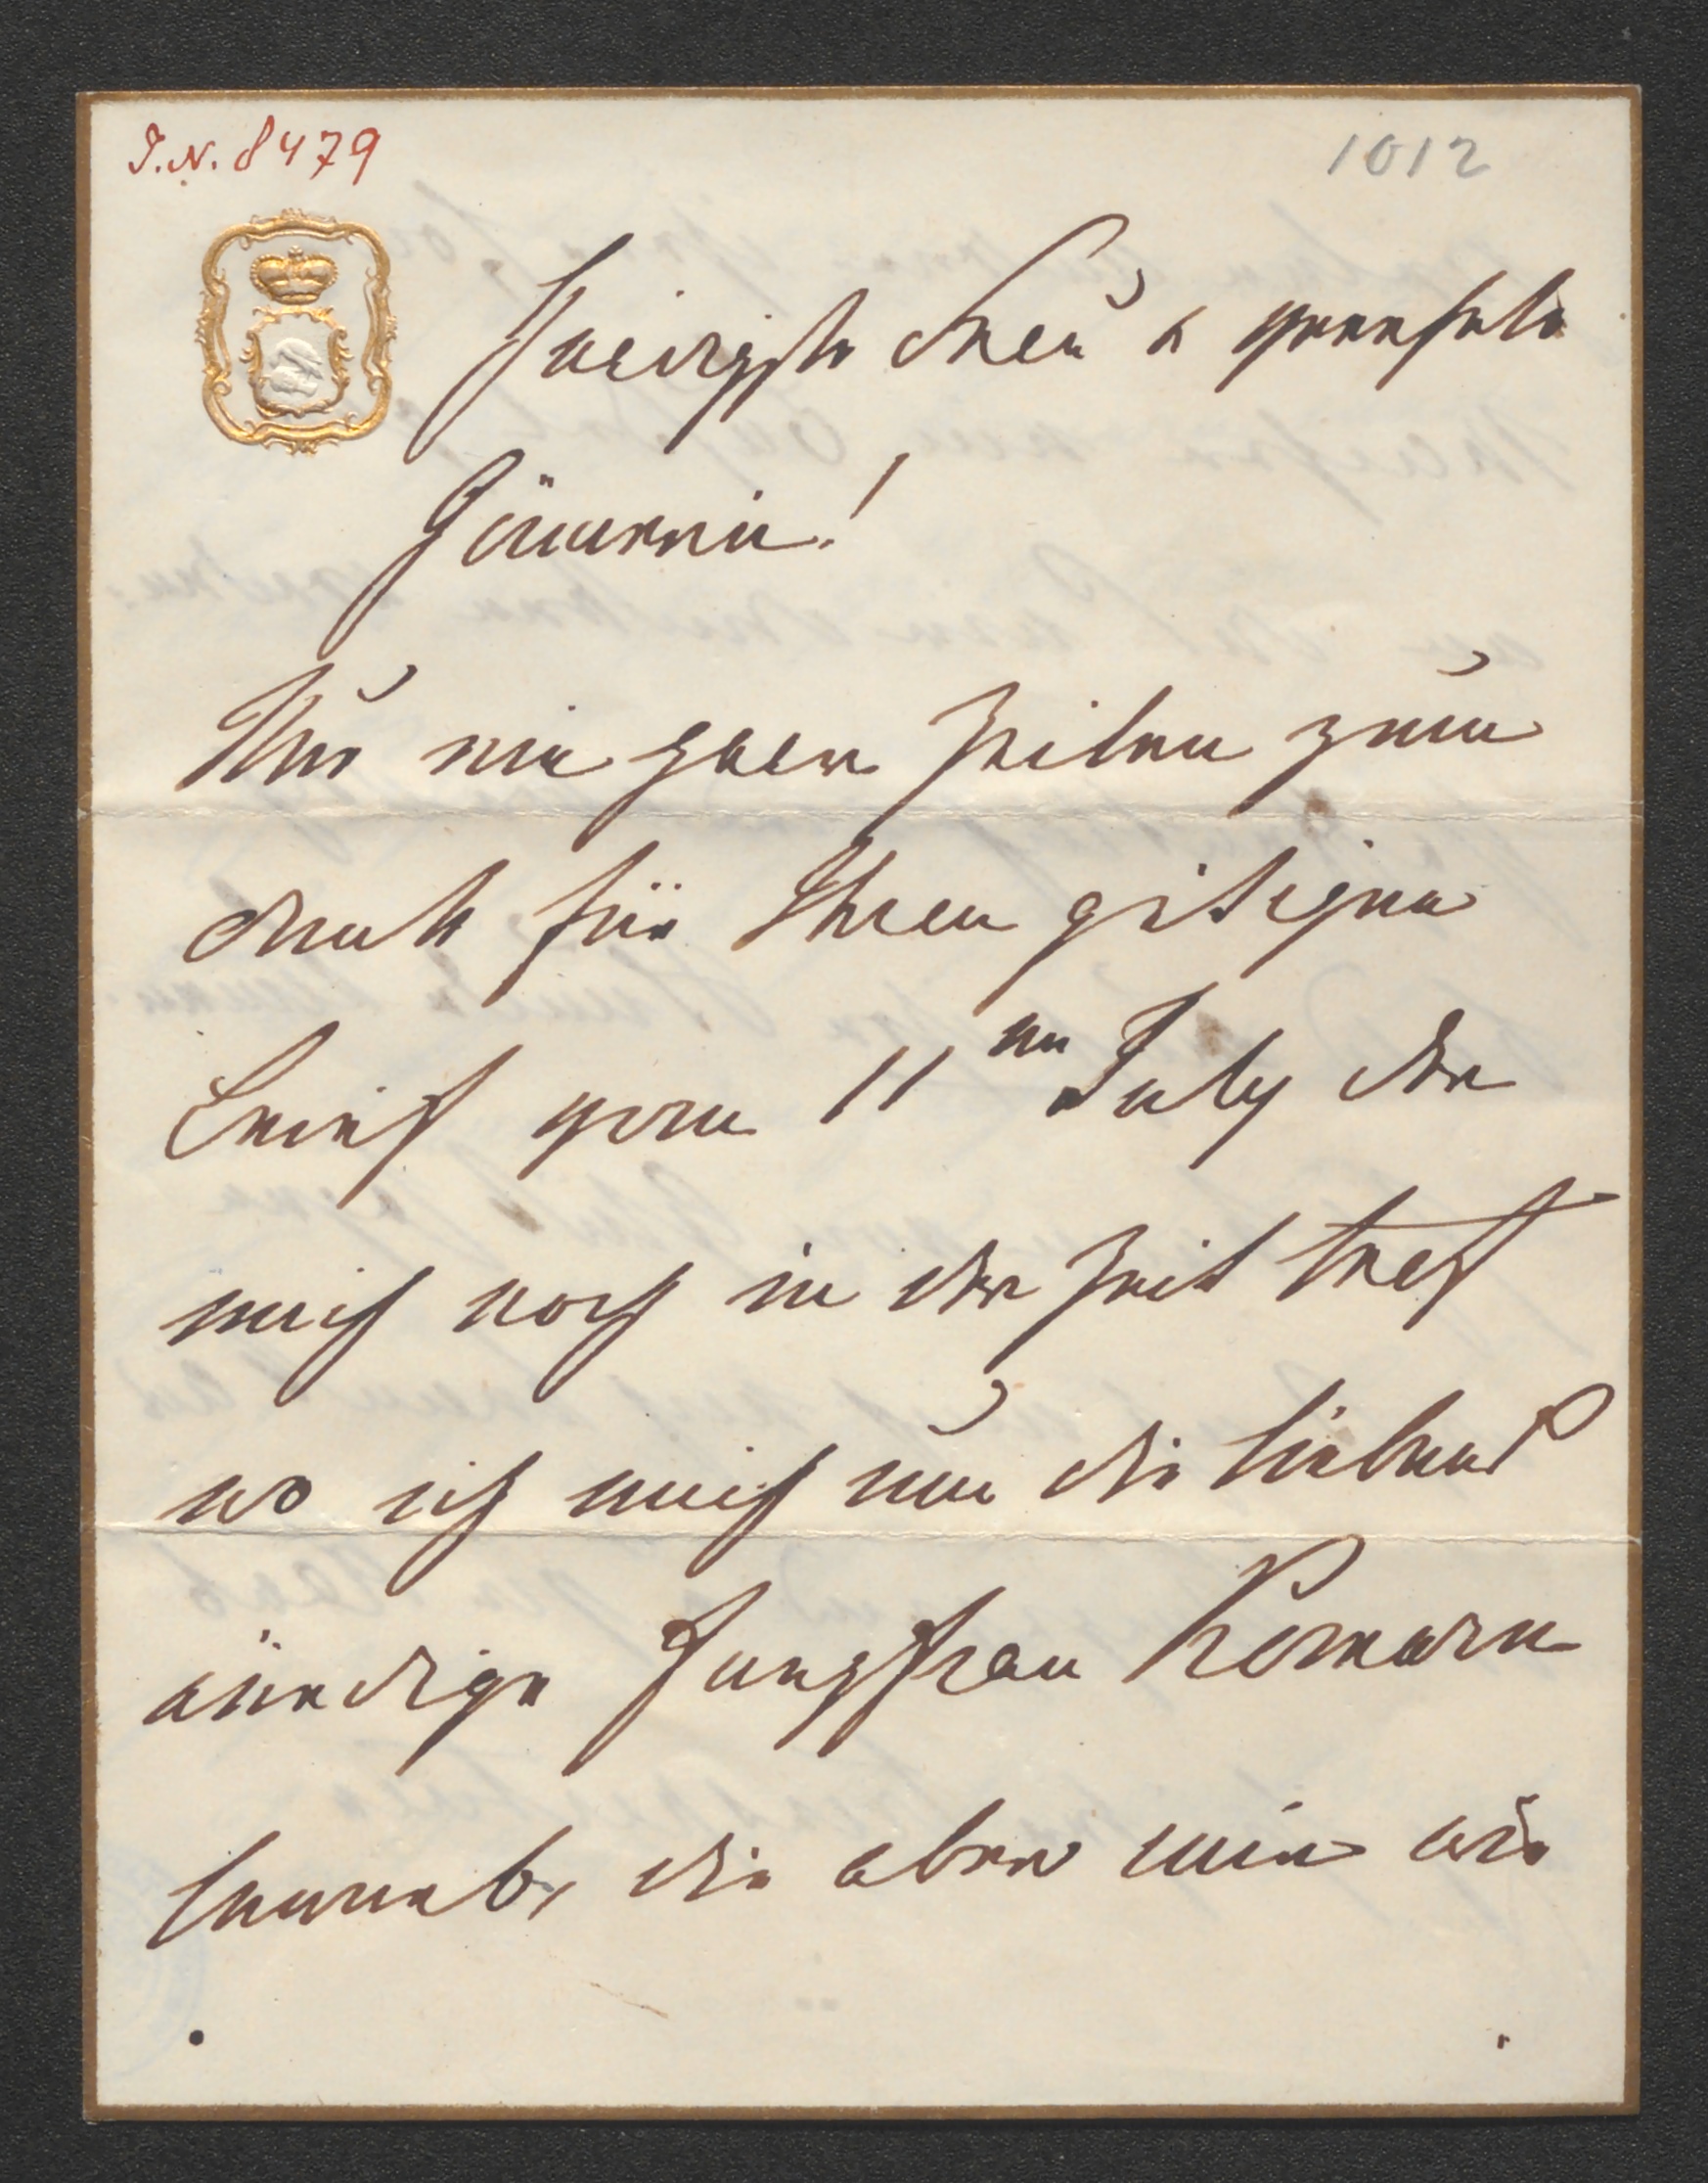 I.N. 8479
1012
Gnädigste Frau u verehrte
Gönnerin!
Nur ein paar Zeilen zum
Dank für Ihren gütigen
Brief vom 11ten July der
mich noch in der Zeit traf
wo ich mich um die liebens
würdige Jungfrau Komorn
bewarb, die aber mir wie